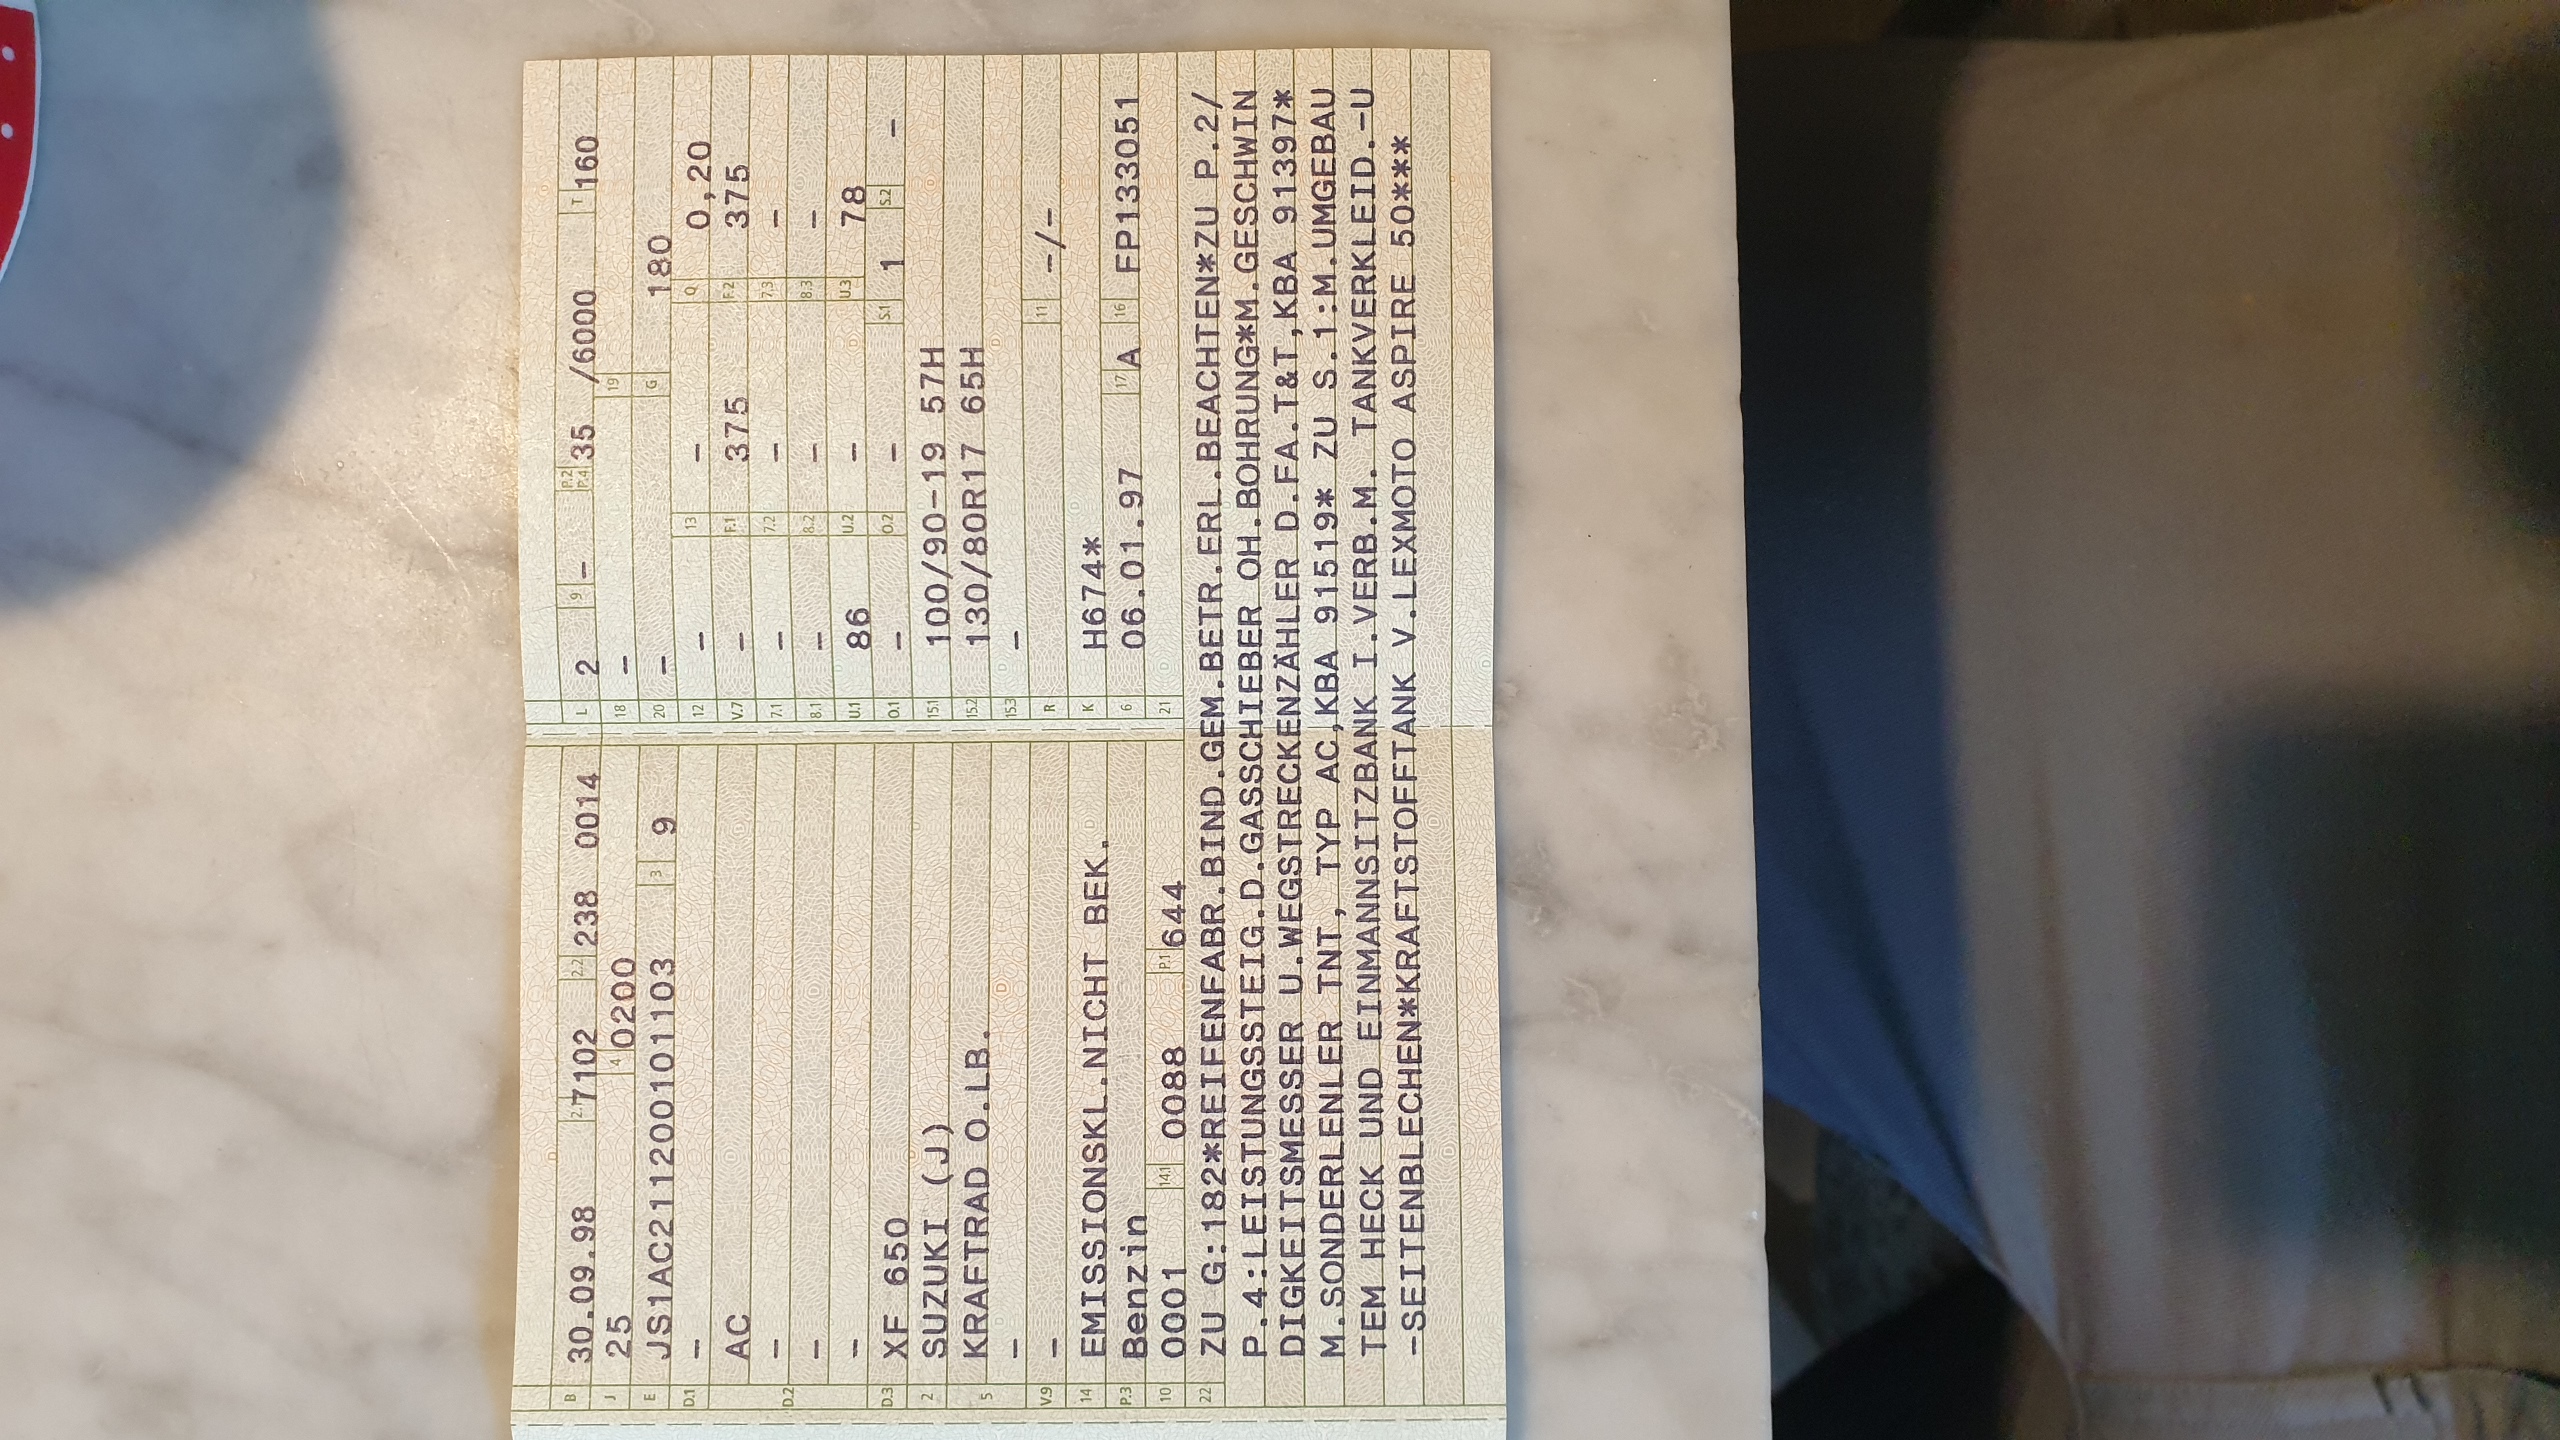 B 30.09.98 2.1 7102 2.2 238 0014
J 25 4 0200
E JS1AC211200101103 3 9
D.1 -
AC
D.2 -
-
-
D.3 XF 650
2 SUZUKI (J)
5 KRAFTRAD O.LB.
-
V.9 -
14 EMISSIONSKL.NICHT BEK.
P.3 Benzin
10 0001 14.1 0088 P.1 644
L 2 9 - P.2 P.4 35 /6000 T 160
18 - 19
20 - G 180
12 - 13 - Q 0,20
V.7 - F.1 375 F.2 375
7.1 - 7.2 - 7.3 -
8.1 - 8.2 - 8.3 -
U.1 86 U.2 - U.3 78
O.1 - O.2 - S.1 1 S.2 -
15.1 100/90-19 57H
15.2 130/80R17 65H
15.3 -
R 11 -/-
K H674*
6 06.01.97 17 A 16 FP133051
21
22 ZU G:182*REIFENFABR.BIND.GEM.BETR.ERL.BEACHTEN*ZU P.2/
P.4:LEISTUNGSSTEIG.D.GASSCHIEBER OH.BOHRUNG*M.GESCHWIN
DIGKEITSMESSER U.WEGSTRECKENZÄHLER D.FA.T&T,KBA 91397*
M.SONDERLENLER TNT, TYP AC,KBA 91519* ZU S.1:M.UMGEBAU
TEM HECK UND EINMANNSITZBANK I.VERB.M. TANKVERKLEID.-U
-SEITENBLECHEN*KRAFTSTOFFTANK V.LEXMOTO ASPIRE 50***